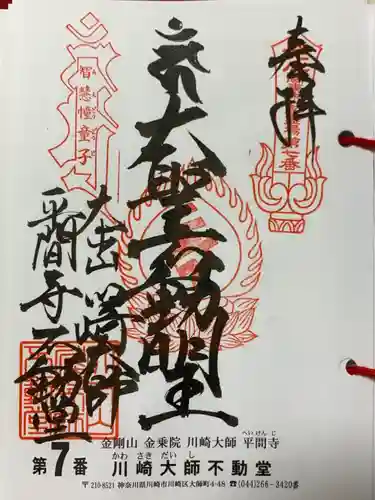 奉拝
大聖不動明王
大本山 川崎大師
平間寺 不動堂
智慧幢童子
金剛山 金乗院 川崎大師 平間寺
へいけんじ
第7番 川崎大師不動堂
かわ さき だい し
〒210-8521 神奈川県川崎市川崎区大師町4-48 ☎(044)266-3420番